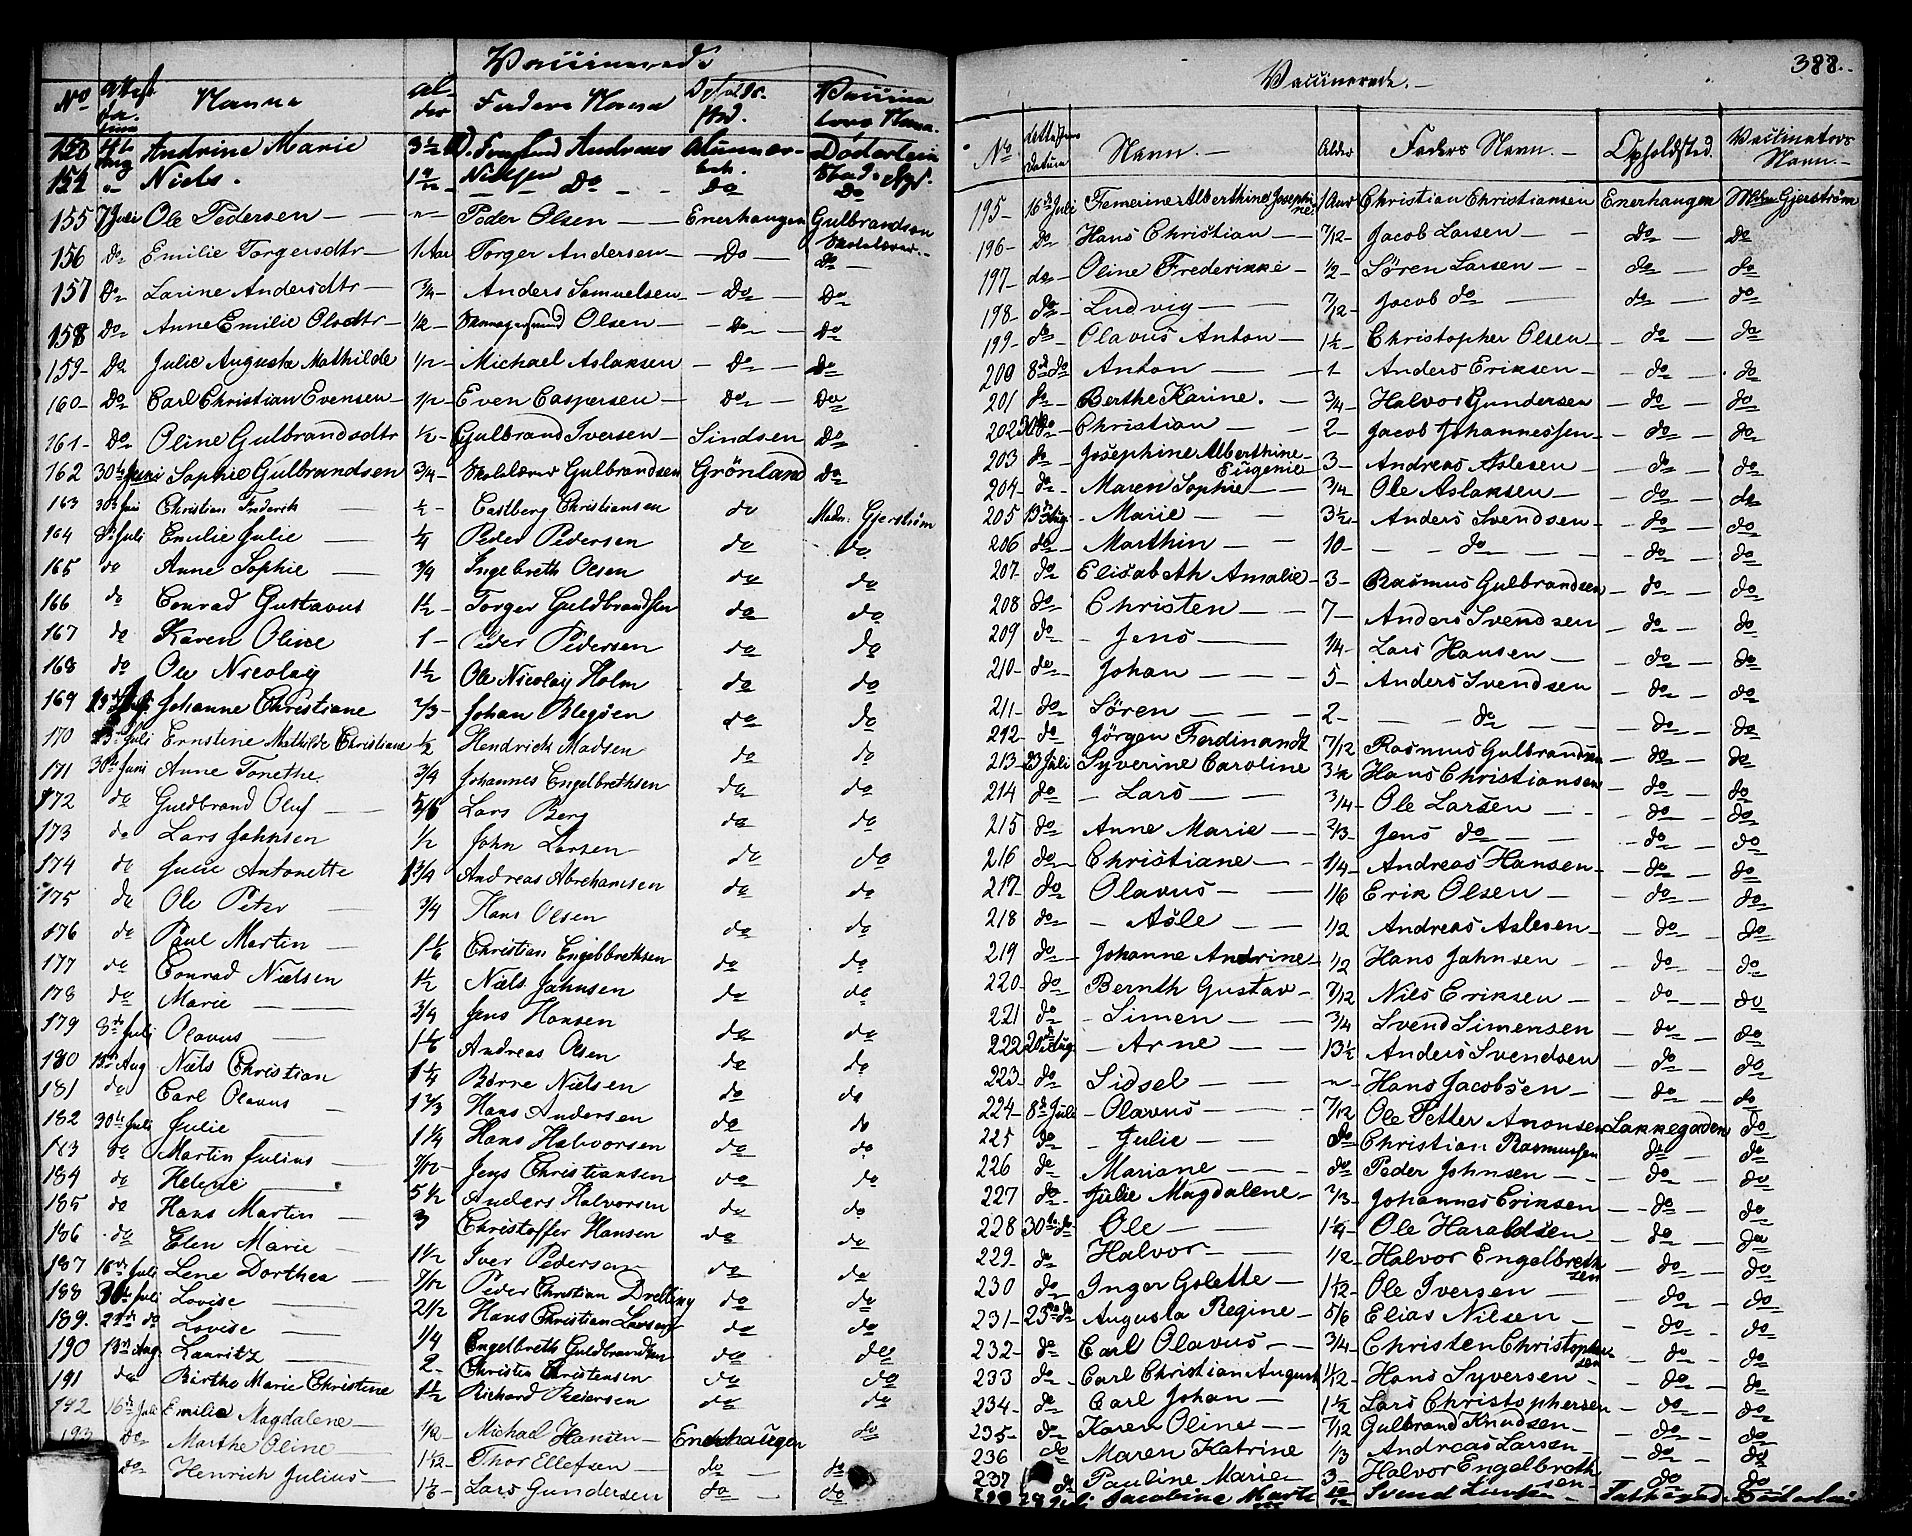 Vaccinerede
No Navne Al-der Faders Navne Opholds-sted. Vaccina-tors Navn.
153 Andrine Marie 3½ Andreas Døderlein
154 " Niels. Nielsen Do Do Do
155 7 Juli Ole Pedersen " Peder Olsen Enerhaugen Gulbrandson
156 Do Emilie Torgersdtr 1 Aar Torger Andersen Do Do
157 Do Larine Andersdtr 3/4 Anders Samuelsen Do Do
158 Do Anne Emilie Olsdtr 1/2 Olsen Do Do
159 Do Julie Augusta Mathilde 1/2 Michael Aslaksen Do Do
160 Do Carl Christian Evensen 1/2 Even Caspersen Do Do
161 Do Oline Gulbrandsdtr 1/2 Gulbrand Iversen Sindsen Do
162 30te Juni Sophie Gulbrandsen 3/4 Skolelærer Gulbrandsen Grönland Do
163 30te Juni Christian Frederik ½ Castberg Christiansen do Mdm. Gjerström
164 8de Juli Emilie Julie ¼ Peder Pedersen do do
165 do Anne Sophie 3/4 Ingebreth Olsen do do
166 do Conrad Gustavus 1½ Torger Guldbrandsen do do
167 do Karen Oline 1 Peder Pedersen do do
168 do Ole Nicolay 1½ Ole Nicolay Holm do do
169 Johanne Christiane 2/3 Johan Blegøen do do
170 23de Juli Ernstine Mathilde Christiane ½ Hendrick Madsen do do
171 30te Juni Anne Tonethe 3/4 Johannes Engelbrethsen do do
172 do Guldbrand Oluf 5/6 Lars Berg do do
173 do Lars Johnsen ½ John Larsen do do
174 do Julie Antonette 1 3/4 Andreas Abrehamsen do do
175 do Ole Peter 3/4 Hans Olsen do do
176 do Paul Martin 1 1/6 Christian Engelbrethsen do do
177 do Conrad Nielsen 1½ Niels Johnsen do do
178 do Marie 3/4 Jens Hansen do do
179 8de Juli Olavus 1 1/6 Andreas Olsen do do
180 13de Aug Niels Christian 1¼ Börre Nielsen do do
181 do Carl Olavus 1 2/3 Hans Andersen do do
182 30te Juli Julie 1¼ Hans Halvorsen do do
183 do Martin Julius 7/12 Jens Christiansen do do
184 do Helene 5½ Anders Halvorsen do do
185 do Hans Martin 3 Christoffer Hansen do do
186 do Elen Marie 1½ Iver Pedersen do do
187 16de Juli Lene Dorthea 7/12 Peder Christian Drelling do do
188 30te Juli Lovise 2½ Hans Christian Larsen do do
189. do Lovise ¼ Engelbreth Guldbrandsen do do
190 13de Aug. Lauritz 2 Christen Christensen do do
191 do Birthe Marie Christine 1½ Richard Pedersen do do
192 16de Juli Emilie Magdalene 1/2 Michael Hansen Enerhaugen do
193 do Marthe Oline 1 1/12 Thor Ellefsen do do
do Henrich Julius 1 1/6 Lars Gundersen do do
388.
Vaccinerede.
No Attestens Datum Navn. Alder Faders Navn. Opholdsted. Vaccinators Navn.
195 16de Juli Femerine Alberthine Josephine 1 Aar Christian Christiansen Enerhaugen Mdm Gjerström
196 do Hans Christian 7/12 Jacob Larsen do do
197 do Oline Frederikke 1/2 Sören Larsen do do
198 do Ludvig 7/12 Jacob do do do
199 do Olavus Anton 1½ Christopher Olsen do do
200 8de do Anton 1 Anders Eriksen do do
201 do Berthe Karine. 3/4 Halvor Gundersen do do
202 30te do Christian 2 Jacob Johannessen do do
203 do Josephine Alberthine Eugenie 3 Andreas Aslesen do do
204 do Maren Sophie 3/4 Ole Aslaksen do do
205 13de Aug. Marie 3½ Anders Svendsen do do
206 do Marthin 10 do do do
207 do Elisabeth Amalie 3 Rasmus Gulbrandsen do do
208 do Christen 7 Anders Svendsen do do
209 do Jens 1/4 Lars Hansen do do
210 do Johan 5 Anders Svendsen do do
211 do Sören 2 do do do
212 do Jörgen Ferdinandt 7/12 Rasmus Gulbrandsen do do
213 23 Juli Syverine Caroline 3½ Hans Christiansen do do
214 do Lars 3/4 Ole Larsen do do
215 do Anne Marie 2/3 Jens do do do
216 do Christiane 1/4 Andreas Hansen do do
217 do Olavus 1/6 Erik Olsen do do
218 do Asle 1/2 Andreas Aslesen do do
219 do Johanne Andrine 1/2 Hans Johnsen do do
220 do Bernth Gustav 7/12 Nils Eriksen do do
221 do Simen 3/4 Svend Simensen do do
222 20de Aug. Arne 13½ Anders Svendsen do do
223 do Sidsel " Hans Jacobsen do do
224 8de Juli Olavus 7/12 Ole Petter Anonsen Lakkegaden do
225 do Julie do Christian Rasmussen do do
226 do Mariane do Peder Johnsen do do
227 do Julie Magdalene 2/3 Johannes Eriksen do do
228 30te do Ole 1¼ Ole Haraldsen do do
229 do Halvor 1/2 Halvor Engelbrethsen do do
230 do Inger Golette 1 1/12 Ole Iversen do do
231 23de do Augusta Regine 5/6 Elias Nilsen do do
232 do Carl Olavus 3/4 Christen Christophersen do do
233 do Carl Christian August 1 1/12 Hans Syversen do do
234 do Carl Johan 1½ Lars Christophersen do do
235 do Karen Oline 7/12 Gulbrand Knudsen do do
236 do Maren Katrine 1/3 Andreas Larsen do do
237 do Pauline Marie 3 Halvor Engelbrethsen do do
Jacobine Marthe Svend